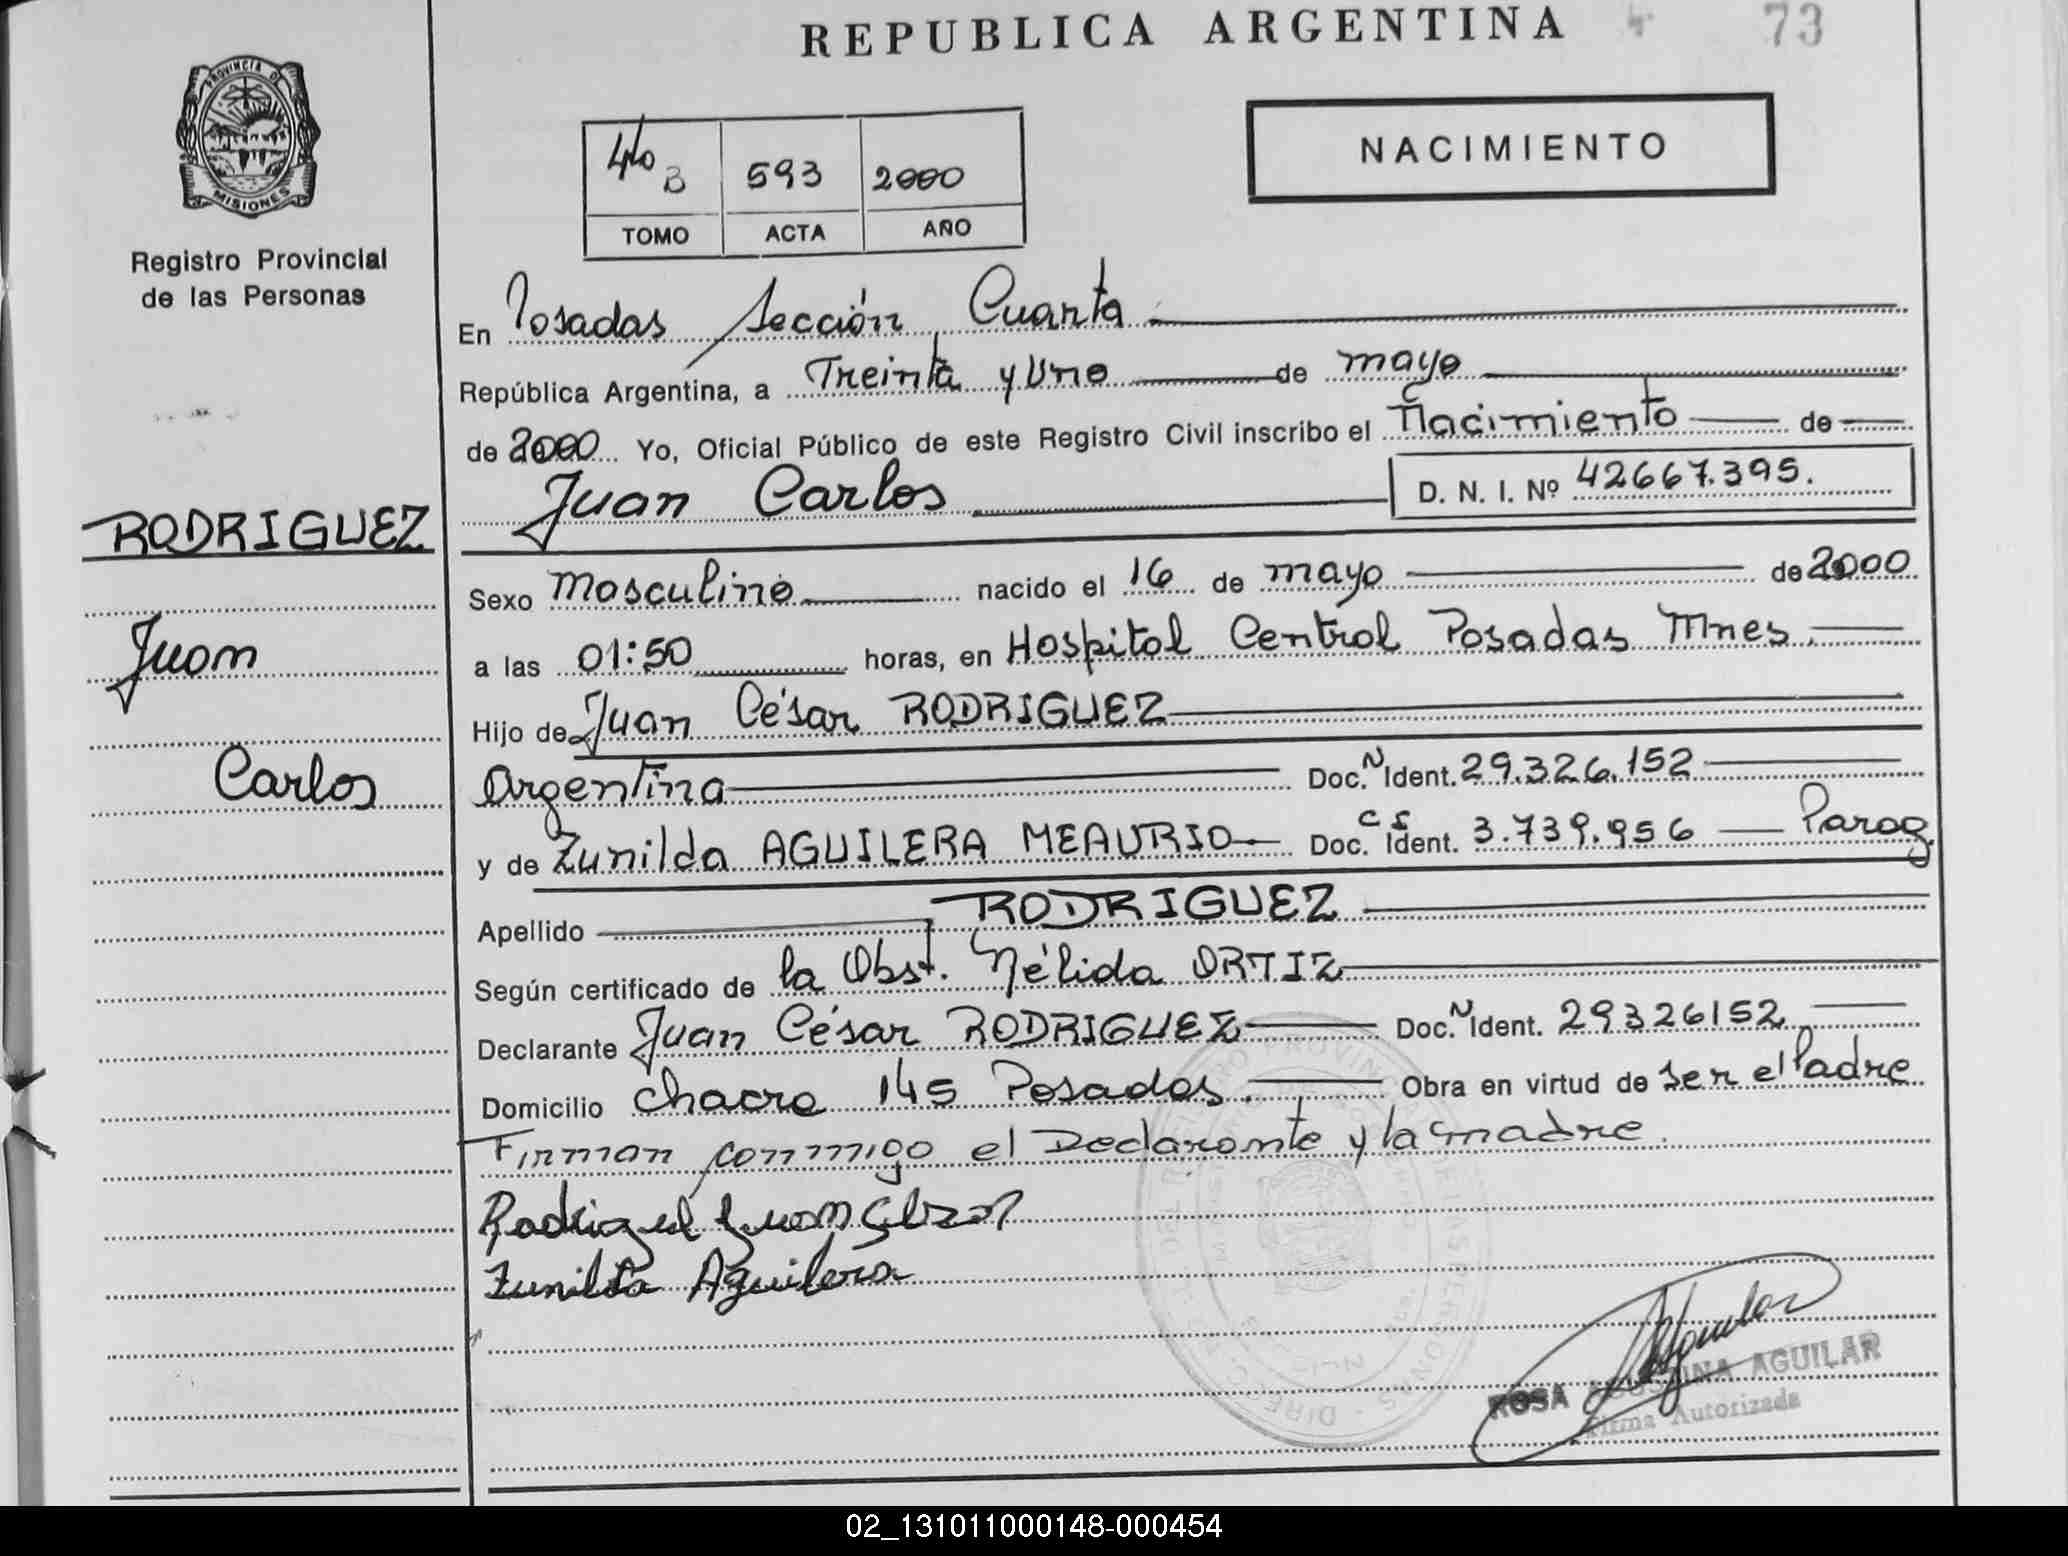 REPUBLICA ARGENTINA
73
PROVINCIA DE
MISIONES
Registro Provincial
de las Personas
4to B 593 2000
TOMO ACTA AÑO
NACIMIENTO
En Posadas, Sección Cuarta
República Argentina, a Treinta y Uno de mayo
de 2000 Yo, Oficial Público de este Registro Civil inscribo el Nacimiento de
Juan Carlos D. N. I. Nº 42667.395.
RODRIGUEZ
Juan
Carlos
Sexo Masculino nacido el 16 de mayo de 2000
a las 01:50 horas, en Hospital Central Posadas Mnes.
Hijo de Juan César RODRIGUEZ
Argentina Doc. N Ident. 29.326.152
y de Zunilda AGUILERA MEAURIO Doc. Ident. 3.739.956 Parag
Apellido RODRIGUEZ
Según certificado de la Obst. Nélida ORTIZ
Declarante Juan César RODRIGUEZ Doc. N Ident. 29326152
Domicilio chacra 145 Posadas. Obra en virtud de ser el Padre
Firman conmigo el Declarante y la madre.
Rodriguez Juan Cesar
Zunilda Aguilera
ROSA AGUSTINA AGUILAR
Firma Autorizada
02_131011000148-000454